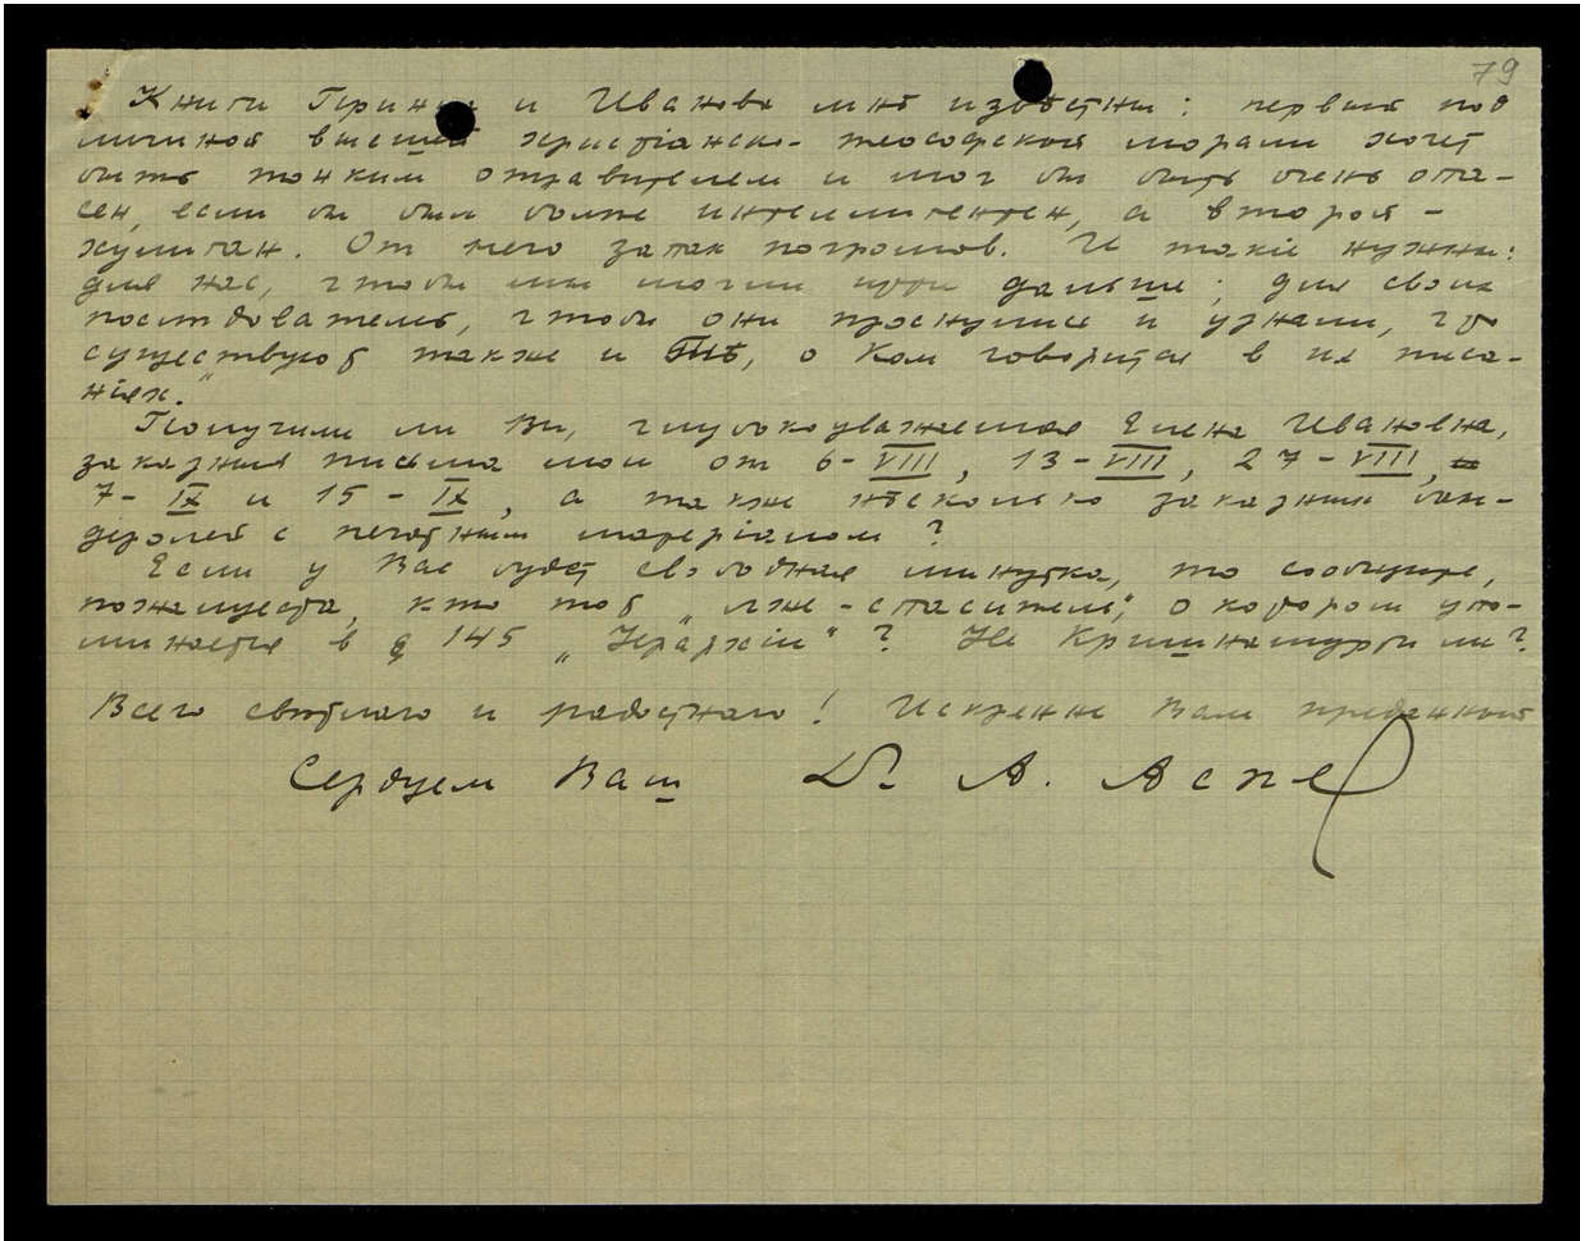 79
Книги Грин и Иванова мнѣ извѣстны: первый под
личиной высшей христіанско-теософской морали хочет
быть тонким отравителем и мог бы быть очень опа-
сен, если бы был болѣе интеллигентен, а второй –
хулиган. От него запах погромов. И такіе нужны:
для нас, чтобы мы могли идти дальше; для своих
послѣдователей, чтобы они проснулись и узнали, что
существуют также и Тѣ, о Ком говорится в их писа-
ніях."
Получили ли Вы, глубокоуважаемая Елена Ивановна,
заказныя письма мои от 6-VIII, 13-VIII, 27-VIII,
7-IX и 15-IX, а также нѣсколько заказных бан-
деролей с печатным матеріалом?
Если у Вас будет свободная минутка, то сообщите,
пожалуйста, кто тот „лже-спаситель", о котором упо-
минается в § 145 „Іерархіи"? Не Кришнамурти ли?
Всего свѣтлаго и радостнаго! Искренне Вам преданный
Сердцем Ваш Dr. А. Аспе